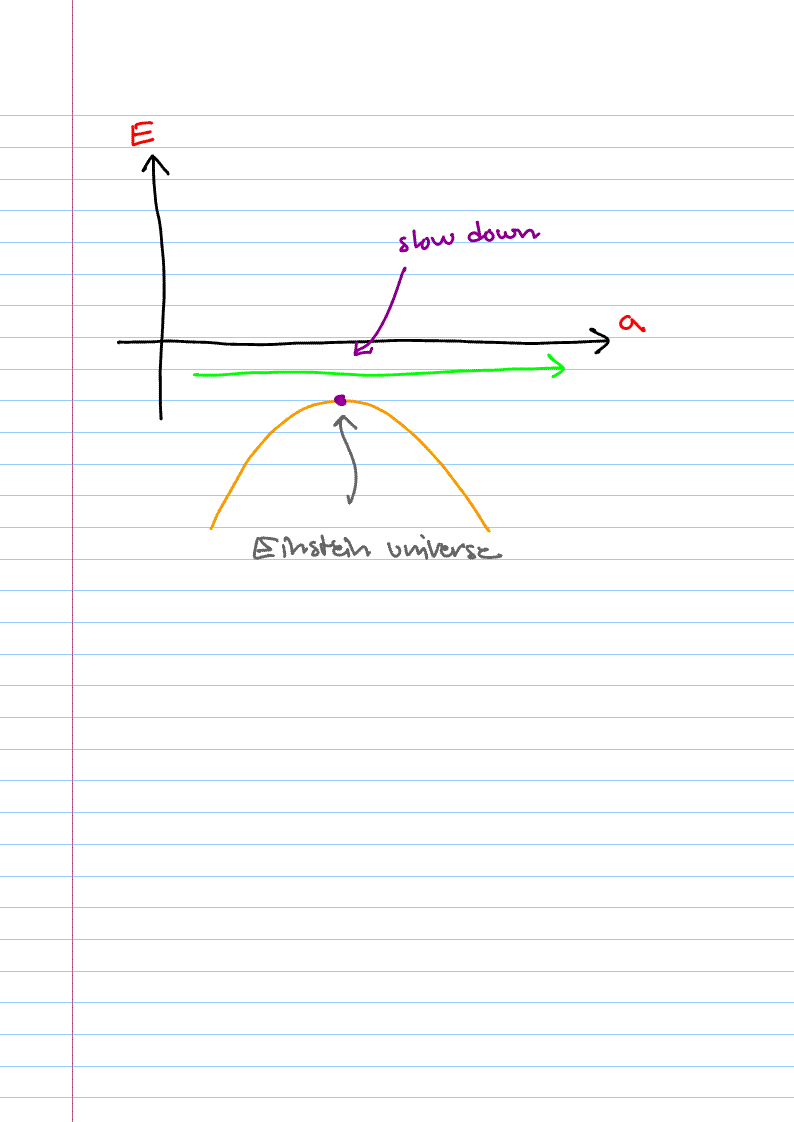 E
slow down
a
Einstein universe